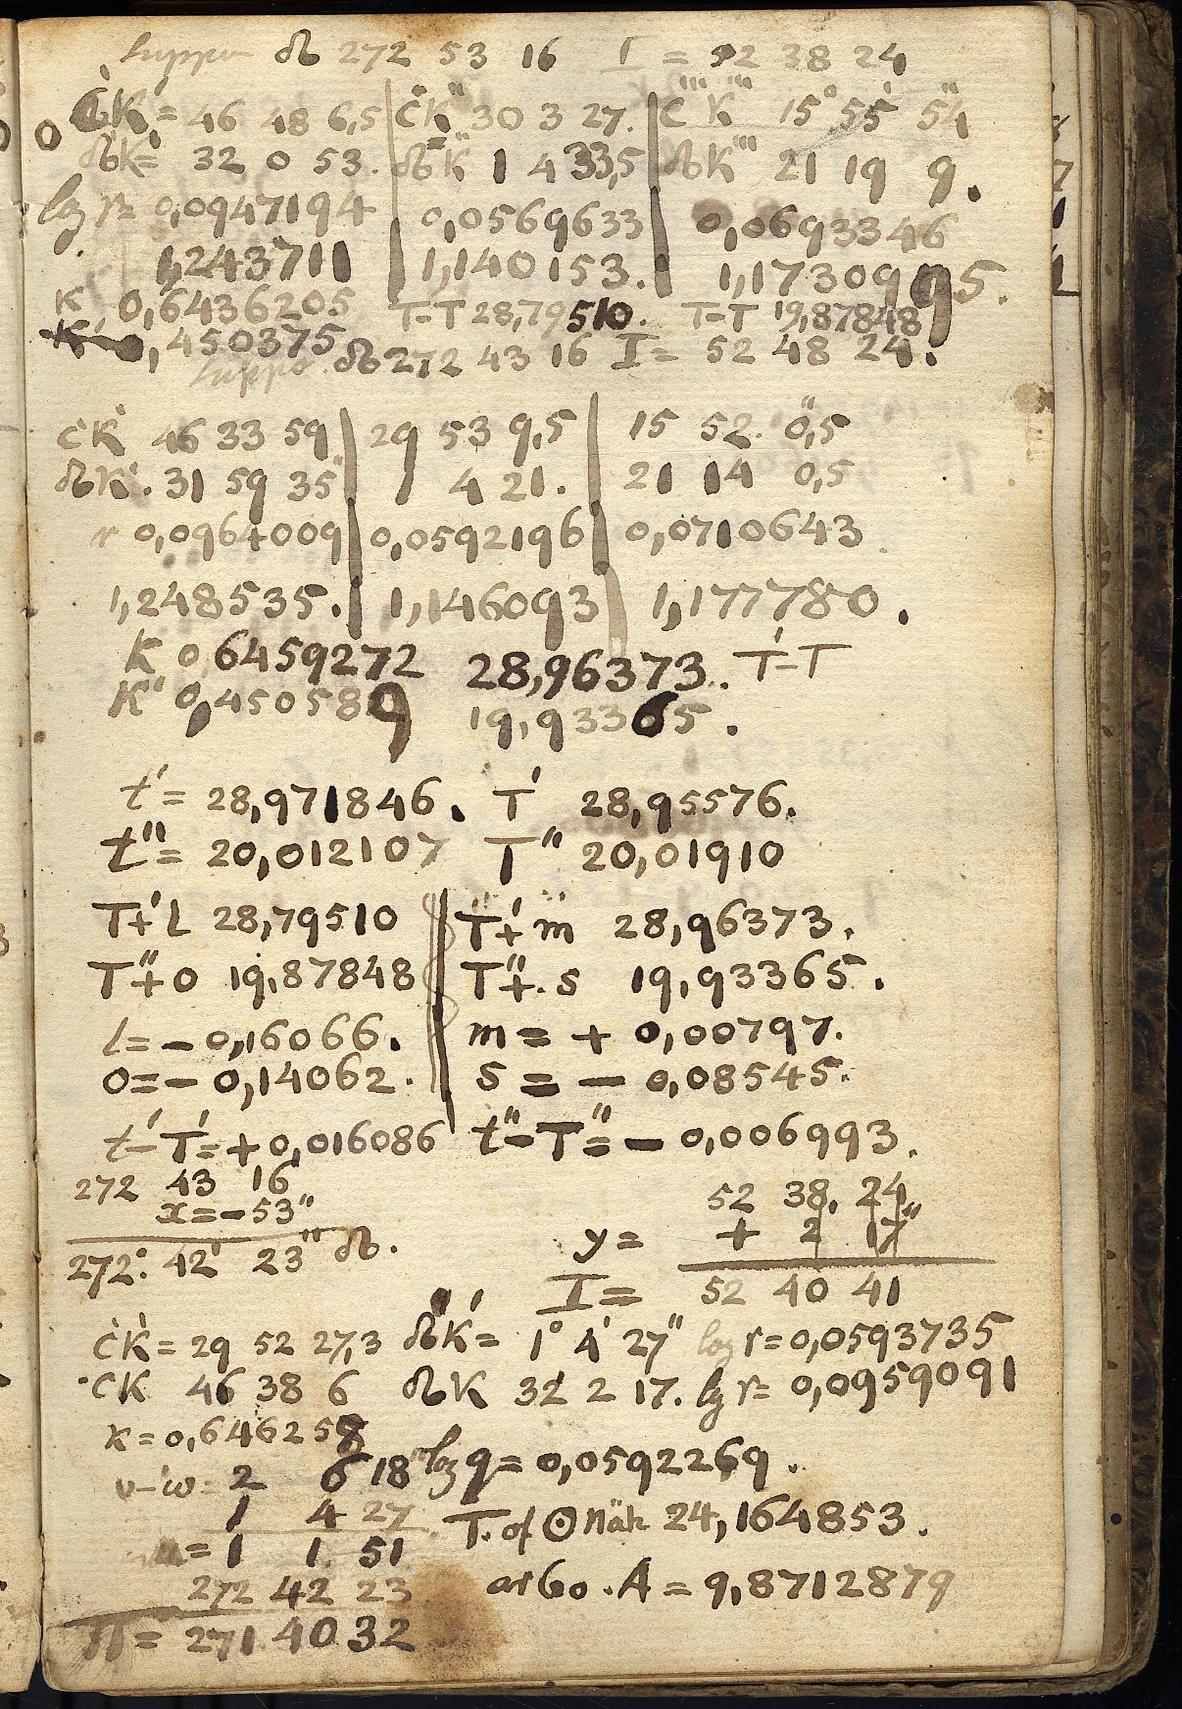 Suppon ☊ 272 53 16 I = 52 38 24
ĊK' = 46 48 6,5 ĊK'' 30 3 27. C'''K''' 15° 55' 54''
☊K' = 32 0 53. ☊K'' 1 4 33,5 ☊K''' 21 19 9.
log r = 0,0947194 0,0569633 0,0693346
1,243711 1,140153. 1,1730995.
K 0,6436205 T'=T 28,79510. T=T 19,87848
0,450375
Suppo. ☊ 272 43 16 I = 52 48 24.
ĊK' 46 33 59 29 53 9,5 15 52. 0,5
☊K'. 31 59 35 1 4 21. 21 14 0,5
r 0,0964009 0,0592196 0,0710643
1,248535. 1,146093 1,177780.
K 0 6459272 28,96373. T'-T
K'' 0,4505889 19,93365.
t' = 28,971846. T' 28,95576.
t'' = 20,012107 T'' 20,01910
T'+l 28,79510 T'+m 28,96373.
T''+o 19,87848 T''+.s 19,93365.
l = - 0,16066. m = + 0,00797.
o = - 0,14062. s = - 0,08545.
t'-T' = + 0,016086 t''-T'' = - 0,006993.
272 43 16 52 38. 24
x = - 53'' y = + 2 17''
272°. 42' 23'' ☊. I = 52 40 41
ĊK' = 29 52 27,3 ☊K' = 1° 4' 27'' log r = 0,0593735
CK 46 38 6 ☊K 32 2 17. lg r = 0,0959091
K = 0,646258
v-w = 2 6 18 log q = 0,0592269.
1 4 27 T. of ☉ näh 24,164853.
= 1 1. 51
272 42 23 A = 9,8712879
π = 271 40 32